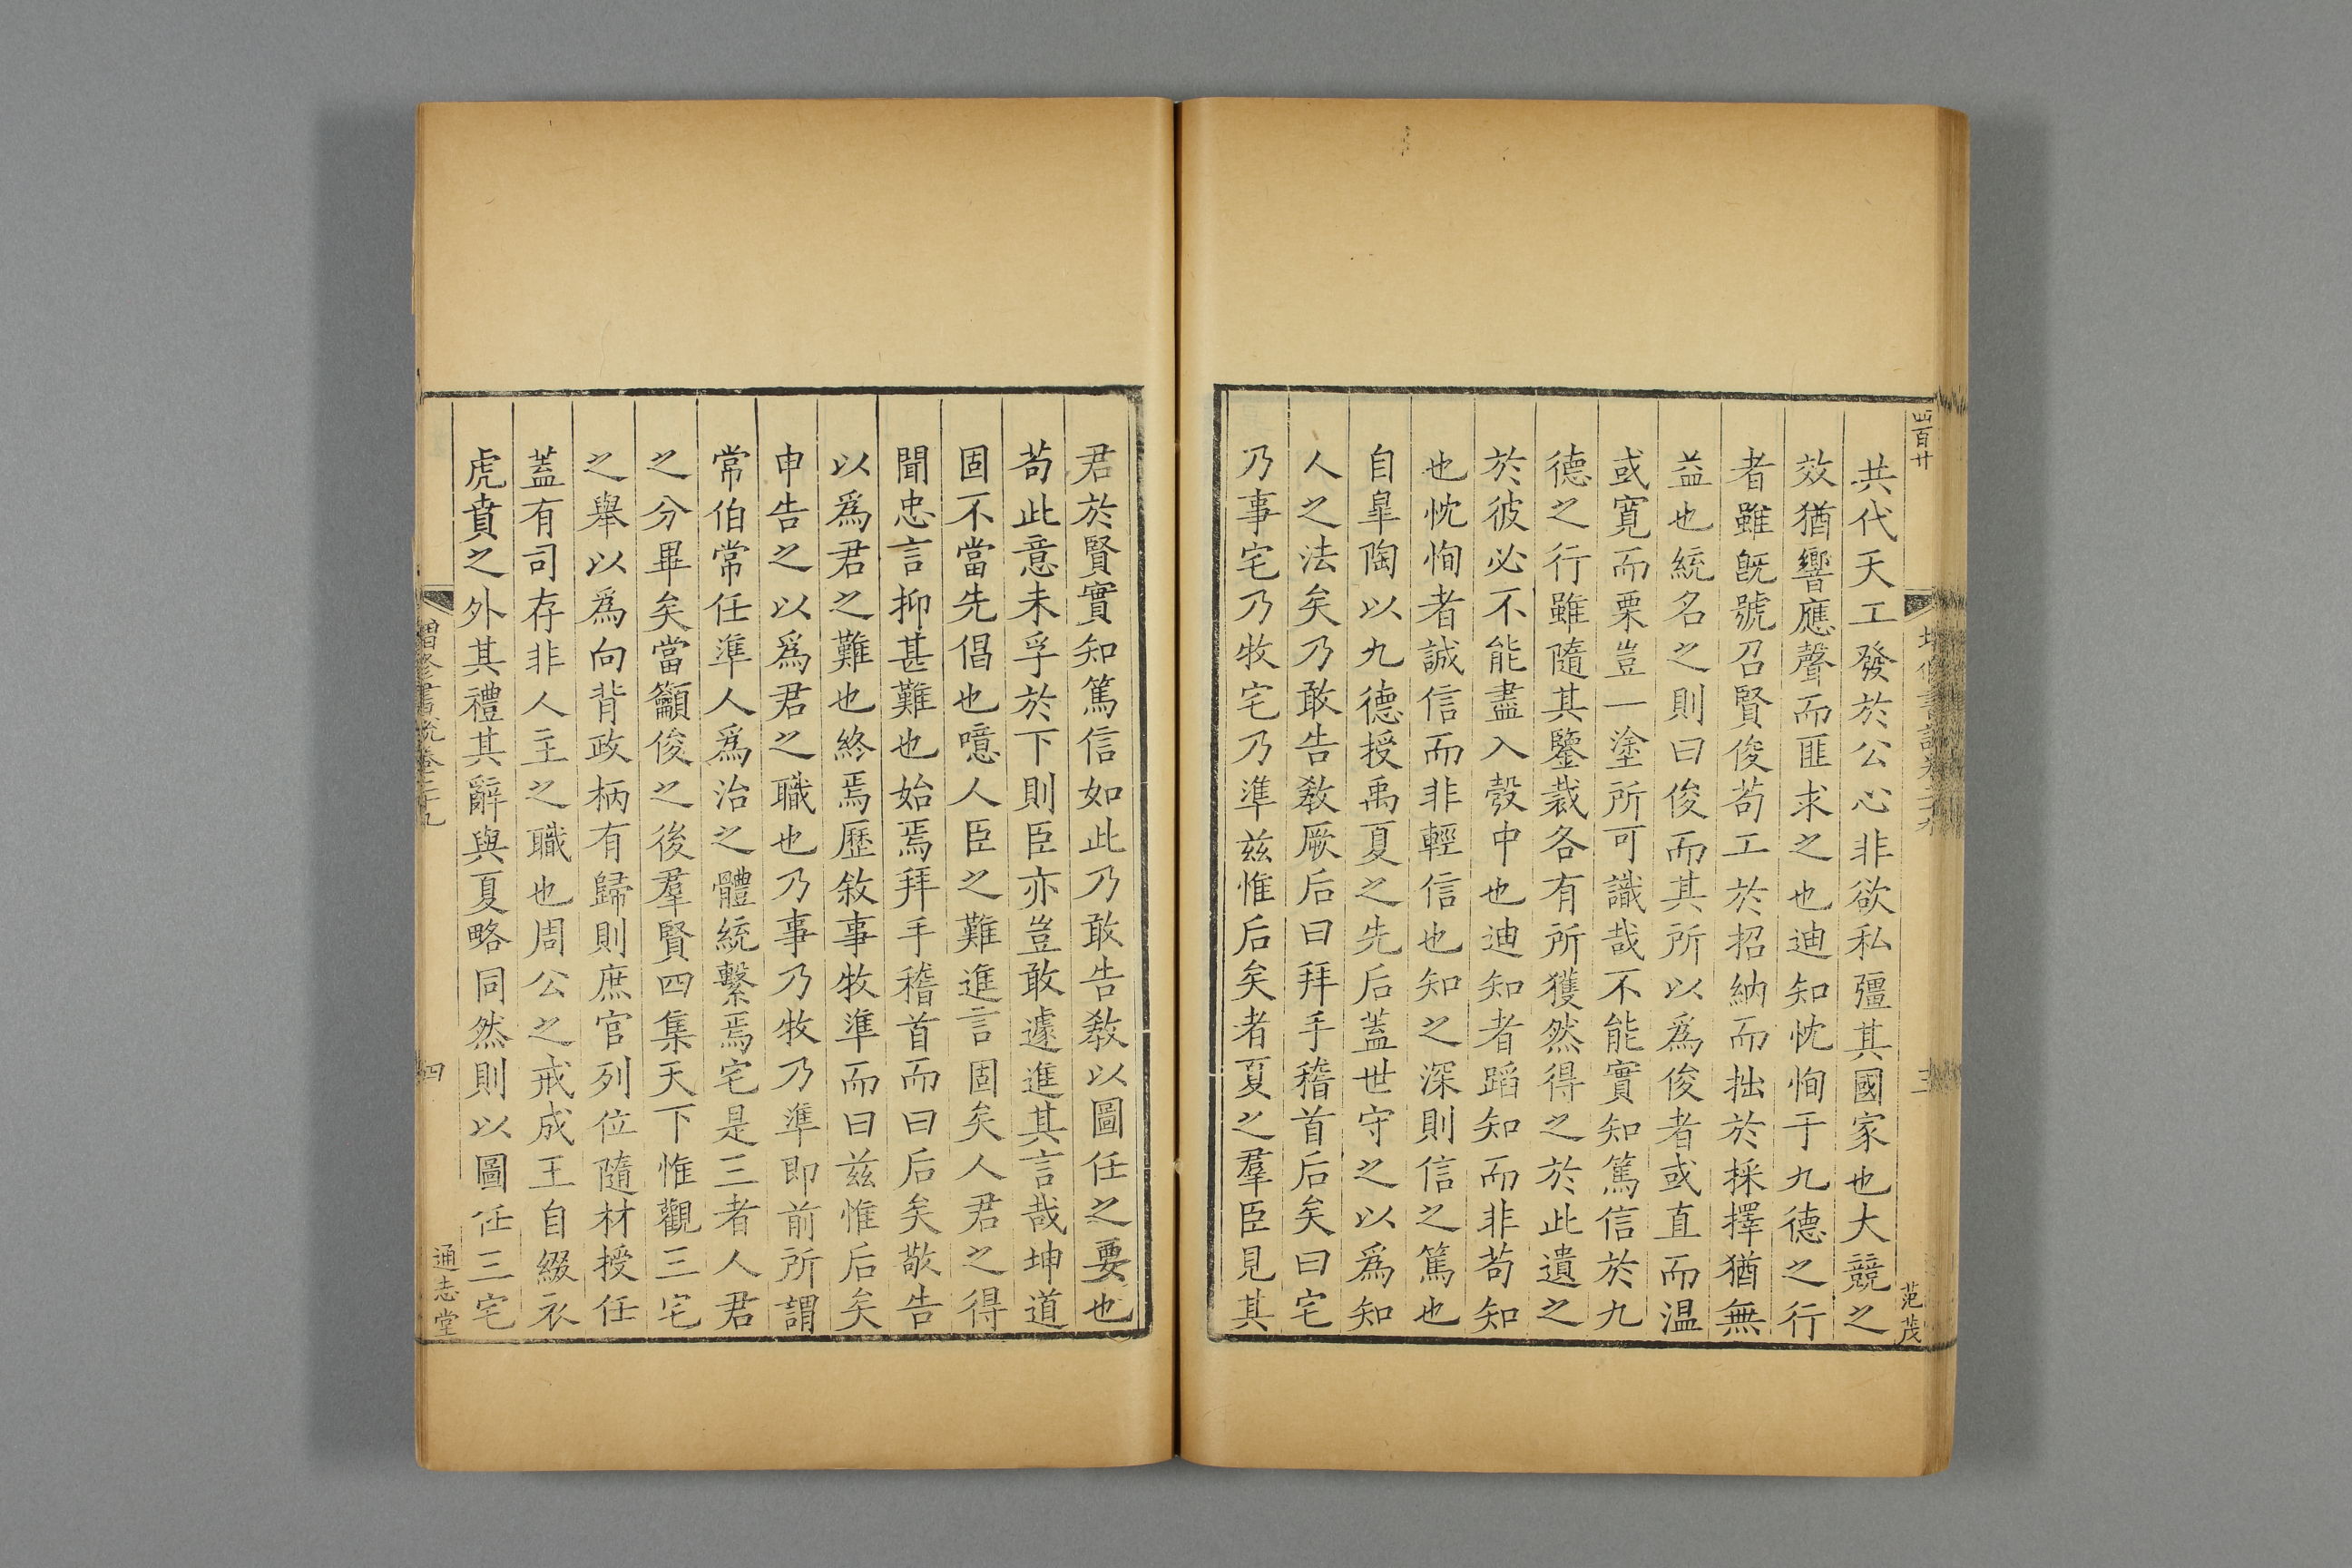 百廿
增修書說卷二十九
三
范茂
共代天工發於公心非欲私彊其國家也大競之
效猶響應聲而匪求之也迪知忱恂于九德之行
者雖旣號召賢俊苟工於招納而拙於採擇猶無
益也統名之則曰俊而其所以爲俊者或直而温
或寛而栗豈一塗所可識哉不能實知篤信於九
德之行雖隨其鑒裁各有所獲然得之於此遺之
於彼必不能盡入彀中也迪知者蹈知而非苟知
也忱恂者誠信而非輕信也知之深則信之篤也
自臯陶以九德授禹夏之先后蓋世守之以爲知
人之法矣乃敢告敎厥后曰拜手稽首后矣曰宅
乃事宅乃牧宅乃準兹惟后矣者夏之羣臣見其
君於賢實知篤信如此乃敢告敎以圖任之要也
苟此意未孚於下則臣亦豈敢遽進其言哉坤道
固不當先倡也噫人臣之難進言固矣人君之得
聞忠言抑甚難也始焉拜手稽首而曰后矣敬告
以爲君之難也終焉歷敘事牧準而曰兹惟后矣
申告之以爲君之職也乃事乃牧乃準即前所謂
常伯常任準人爲治之體統繫焉宅是三者人君
之分畢矣當籲俊之後羣賢四集天下惟觀三宅
之舉以爲向背政柄有歸則庶官列位隨材授任
蓋有司存非人主之職也周公之戒成王自綴衣
虎賁之外其禮其辭與夏略同然則以圖任三宅
增修書說卷二十九
四
通志堂